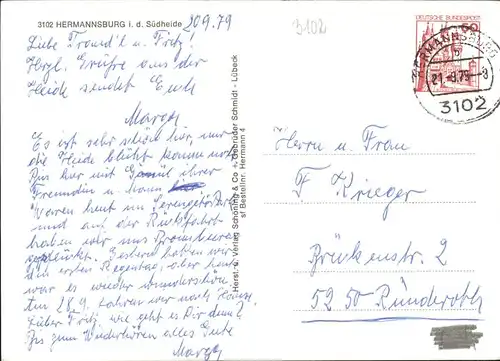 3102 HERMANNSBURG i. d. Südheide
20.9.79
3102
Liebe Traud'l u. Fritz.
Hrzl. Grüße aus der
Heide sendet Euch
Margot
Es ist sehr schön hier, nur
die Heide blüht kaum noch.
Bin hier mit ihrer
Freundin u. Mann hier
Waren heut im Serengetipark
und auf der Rückfahrt
haben wir uns Brombeeren
gepflückt. Gestern hatten wir
den ersten Regentag, aber heut
war es wieder wunderschön
Am 28.9. fahren wir nach Hause.
Lieber Fritz wie geht es Dir denn?
Bis zum Wiederhören alles Gute
Margot
Herst. u. Verlag Schöning & Co + Gebrüder Schmidt - Lübeck
Bestellnr. Hermann 4
DEUTSCHE BUNDESPOST
50
HERMANNSBURG
21.-9.79-9
3102
Herrn u. Frau
F Krieger
Brückenstr. 2
5250 Ründeroth